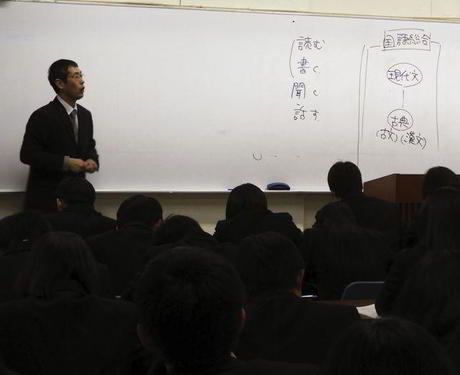 読む
書く
聞く
話す
国語総合
現代文
古典
(古文)(漢文)